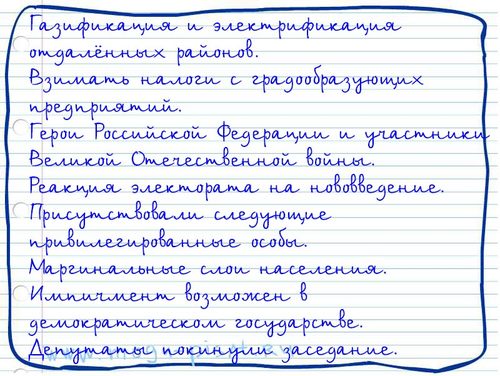 Газификация и электрификация
отдалённых районов.
Взимать налоги с градообразующих
предприятий.
Герои Российской Федерации и участники
Великой Отечественной войны.
Реакция электората на нововведение.
Присутствовали следующие
привилегированные особы.
Маргинальные слои населения.
Импичмент возможен в
демократическом государстве.
Депутаты покинули заседание.